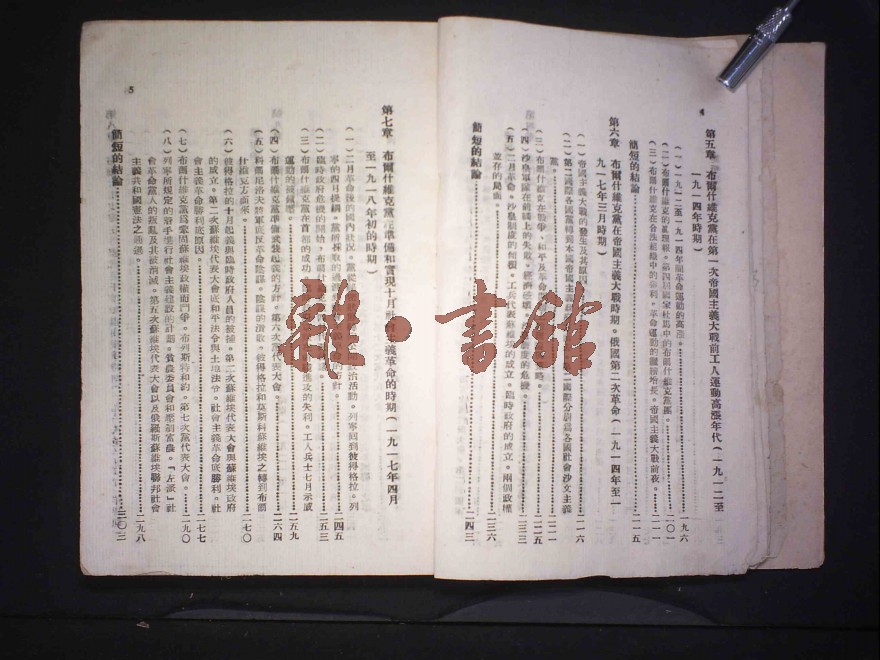 4
第五章　布爾什維克黨在第一次帝國主義大戰前工人運動高漲年代（一九一二至
一九一四年時期）
（一）一九一二至一九一四年間革命運動的高漲。……一九六
（二）布爾什維克的眞理報。第四屆國家杜馬中的布爾什維克黨團。……二〇一
（三）布爾什維克在合法組織中的勝利。革命運動的繼續增長。帝國主義大戰前夜。……二一一
簡短的結論……二一五
第六章　布爾什維克黨在帝國主義大戰時期。俄國第二次革命（一九一四年至一
九一七年三月時期）
（一）帝國主義大戰的發生及其原因……二一六
（二）第二國際各國黨轉到本國帝國主義 二國際分崩爲各國社會沙文主義
黨。……二二一
（三）布爾什維克黨在戰爭、和平及革命 略。……二二五
（四）沙皇軍隊在前線上的失敗。經濟破壞。 制度的危機。……二三三
（五）二月革命。沙皇制度的傾覆。工兵代表蘇維埃的成立。臨時政府的成立。兩個政權
並存的局面。……二三六
簡短的結論……二四三
5
第七章　布爾什維克黨在準備和實現十月社會主義革命的時期（一九一七年四月
至一九一八年初的時期）
（一）二月革命後的國內狀況。黨 政治活動。列寧回到彼得格拉。列
寧的四月提綱。黨所採取的 的方針。……二四五
（二）臨時政府危機的開始。布爾什 議。……二五三
（三）布爾什維克黨在首都的成功。 進攻的失利。工人兵士七月示威
運動的被鎮壓。……二五九
（四）布爾什維克黨準備武裝起義的方針。第六次黨代表大會。……二六四
（五）科爾尼洛夫將軍底反革命陰謀。陰謀的潰敗。彼得格拉和莫斯科蘇維埃之轉到布爾
什維克方面來。……二七〇
（六）彼得格拉的十月起義與臨時政府人員的被捕。第二次蘇維埃代表大會與蘇維埃政府
的成立。第二次蘇維埃代表大會底和平法令與土地法令。社會主義革命底勝利。社
會主義革命勝利底原因。……二七七
（七）布爾什維克黨爲鞏固蘇維埃政權而鬥爭。布列斯特和約。第七次黨代表大會。……二九〇
（八）列寧所規定的着手進行社會主義建設的計劃。貧農委員會和壓制富農。『左派』社
會革命黨人的叛亂及其被消滅。第五次蘇維埃代表大會以及俄羅斯蘇維埃聯邦社會
主義共和國憲法之通過。……二九八
簡短的結論……三〇三
雜·書館